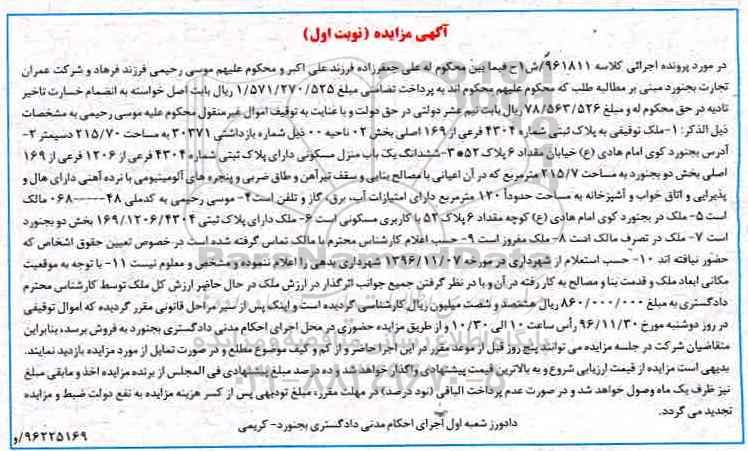 آگهی مزایده (نوبت اول)
در مورد پرونده اجرائی کلاسه ۹۶۱۸۱۱/ش۱ح فیما بین محکوم له علی جعفرزاده فرزند علی اکبر و محکوم علیهم موسی رحیمی فرزند فرهاد و شرکت عمران
تجارت بجنورد مبنی بر مطالبه طلب که محکوم علیهم محکوم اند به پرداخت تضامنی مبلغ ۱/۵۷۱/۲۷۰/۵۲۵ ریال بابت اصل خواسته به انضمام خسارت تاخیر
تادیه در حق محکوم له و مبلغ ۷۸/۵۶۳/۵۲۶ ریال بابت نیم عشر دولتی در حق دولت و با عنایت به توقیف اموال غیرمنقول محکوم علیه موسی رحیمی به مشخصات
ذیل الذکر: ۱-ملک توقیفی به پلاک ثبتی شماره ۴۳۰۴ فرعی از ۱۶۹ اصلی بخش ۰۲ ناحیه ۰۰ ذیل شماره بازداشتی ۳۰۳۷۱ به مساحت ۲۱۵/۷۰ دسیمتر ۲-
آدرس بجنورد کوی امام هادی (ع) خیابان مقداد ۶ پلاک ۵۲ ۳-ششدانگ یک باب منزل مسکونی دارای پلاک ثبتی شماره ۴۳۰۴ فرعی از ۱۲۰۶ فرعی از ۱۶۹
اصلی بخش دو بجنورد به مساحت ۲۱۵/۷ مترمربع که در آن اعیانی با مصالح بنایی و سقف تیرآهن و طاق ضربی و پنجره های آلومینیومی با نرده آهنی دارای هال و
پذیرایی و اتاق خواب و آشپزخانه به مساحت حدوداً ۱۲۰ مترمربع دارای امتیازات آب، برق، گاز و تلفن است ۴- موسی رحیمی به کدملی ۴۸-----۰۶۸ مالک
است ۵- ملک در بجنورد کوی امام هادی (ع) کوچه مقداد ۶ پلاک ۵۲ با کاربری مسکونی است ۶- ملک دارای پلاک ثبتی ۱۶۹/۱۲۰۶/۴۳۰۴ بخش دو بجنورد
است ۷- ملک در تصرف مالک است ۸- ملک مفروز است ۹- حسب اعلام کارشناس محترم با مالک تماس گرفته شده است در خصوص تعیین حقوق اشخاص که
حضور نیافته اند ۱۰- حسب استعلام از شهرداری در مورخه ۱۳۹۶/۱۱/۰۷ شهرداری بدهی را اعلام ننموده و مشخص و معلوم نیست ۱۱- با توجه به موقعیت
مکانی ابعاد ملک و قدمت بنا و مصالح به کار رفته در آن و با در نظر گرفتن جمیع جوانب اثرگذار در ارزش ملک در حال حاضر ارزش کل ملک توسط کارشناس محترم
دادگستری به مبلغ ۸۶۰/۰۰۰/۰۰۰ ریال هشتصد و شصت میلیون ریال کارشناسی گردیده است و اینک پس از سیر مراحل قانونی مقرر گردیده که اموال توقیفی
در روز دوشنبه مورخ ۹۶/۱۱/۳۰ رأس ساعت ۱۰ الی ۱۰/۳۰ و از طریق مزایده حضوری در محل اجرای احکام مدنی دادگستری بجنورد به فروش برسد، بنابراین
متقاضیان شرکت در جلسه مزایده می توانند پنج روز قبل از موعد مقرر در این اجرا حاضر و از کم و کیف موضوع مطلع و در صورت تمایل از مورد مزایده بازدید نمایند.
بدیهی است مزایده از قیمت ارزیابی شروع و به بالاترین قیمت پیشنهادی واگذار خواهد شد و ده درصد مبلغ پیشنهادی فی المجلس از برنده مزایده اخذ و مابقی مبلغ
نیز ظرف یک ماه وصول خواهد شد و در صورت عدم پرداخت الباقی (نود درصد) در مهلت مقرر، مبلغ تودیعی پس از کسر هزینه مزایده به نفع دولت ضبط و مزایده
تجدید می گردد.
دادورز شعبه اول اجرای احکام مدنی دادگستری بجنورد- کریمی
۹۶۲۲۵۱۶۹/و
پایگاه اطلاع رسانی مناقصه و مزایده
۰۲۱-۸۸۳۴۹۶۷۰-۵